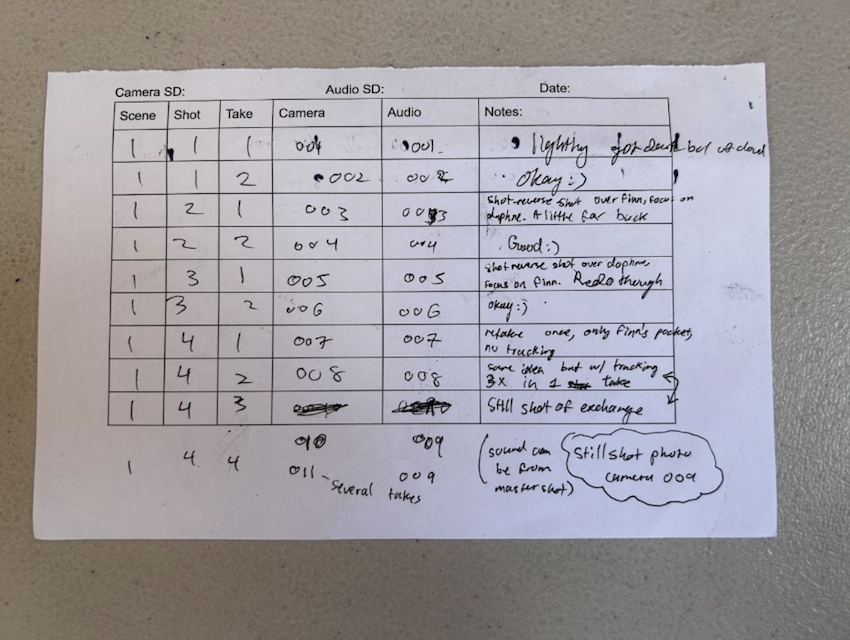 Camera SD: Audio SD: Date:
Scene Shot Take Camera Audio Notes:
1 1 1 001 001 got but
1 1 2 002 002 okay :)
1 2 1 003 003 shot-reverse shot over finn, focus on
daphne. A little far back
1 2 2 004 004 Good :)
1 3 1 005 005 shot-reverse shot over daphne,
focus on finn. Redo though
1 3 2 006 006 okay :)
1 4 1 007 007 retake once, only Finn's pocket,
no tracking
1 4 2 008 008 same idea but w/ tracking
3x in 1 take
1 4 3 Still shot of exchange
010 009
1 4 4 011 - several takes 009
(sound can
be from
master shot)
Still shot photo
camera 009